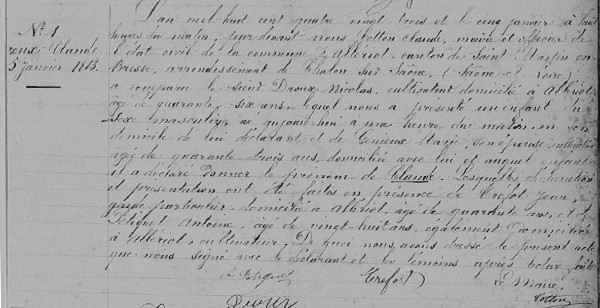 N° 1
Claude
5 janvier 1883.
L'an mil huit cent quatre vingt trois et le cinq janvier à huit
heures du matin, par devant nous Cotton Claude, maire et officier de
l'état civil de la commune d'Allériot, canton de Saint Martin en
Bresse, arrondissement de Chalon sur Saône, (Saône et Loire)
a comparu le sieur Droux Nicolas, cultivateur domicilié à Allériot
âgé de quarante six ans, lequel nous a présenté un enfant du
sexe masculin, né aujourd'hui à une heure du matin, en son
domicile de lui déclarant et de Genieux Marie, son épouse,
âgée de quarante trois ans, domiciliée avec lui et auquel enfant
il a déclaré donner le prénom de Claude. Lesquelles déclaration
et présentation ont été faites en présence de Trefot Jean,
garde particulier, domicilié à Allériot, âgé de quarante ans, et de
Petignet Antoine, âgé de vingt-huit ans, également domicilié
à Allériot, cultivateur. De quoi nous avons dressé le présent acte
que nous signé avec le déclarant et les témoins après lecture faite
Trefot
Le Maire,
Cotton
Droux